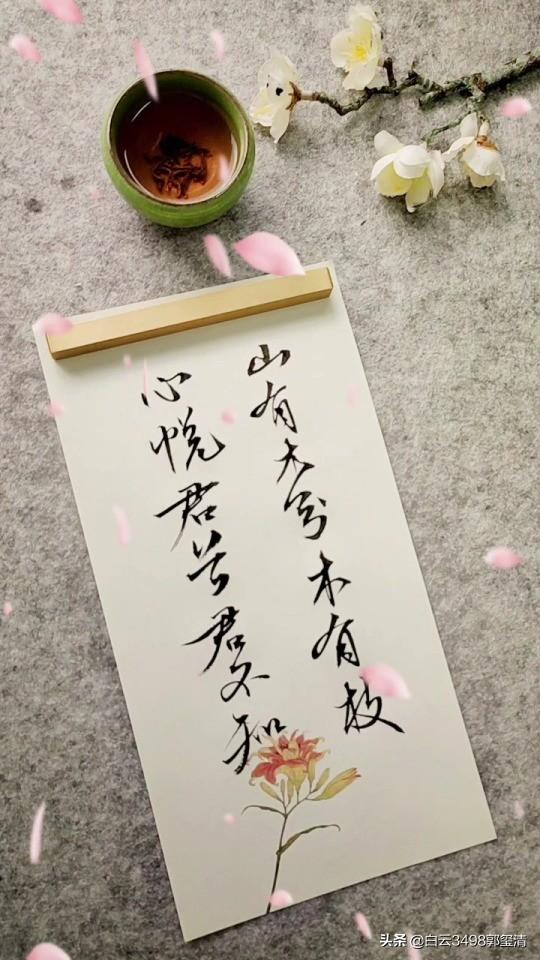 山有木兮木有枝
心悦君兮君不知
头条 @白云3498郭玺清